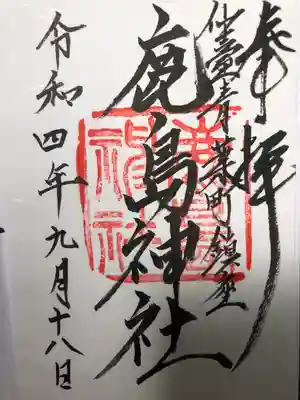 奉拝
仙臺葉町鎮座
鹿島神社
令和四年九月十八日